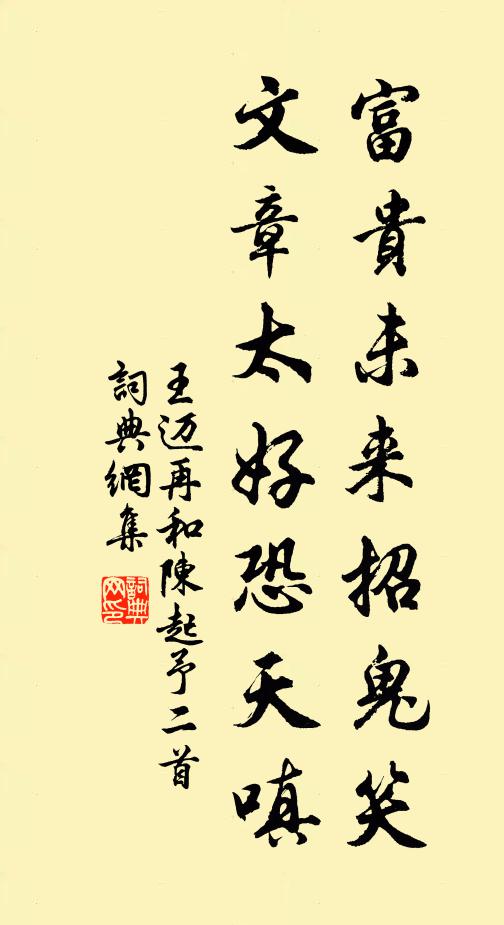 富貴未来招鬼笑
文章太好恐天嗔
王迈再和陳起予二首
詞典網集
詞典
网印